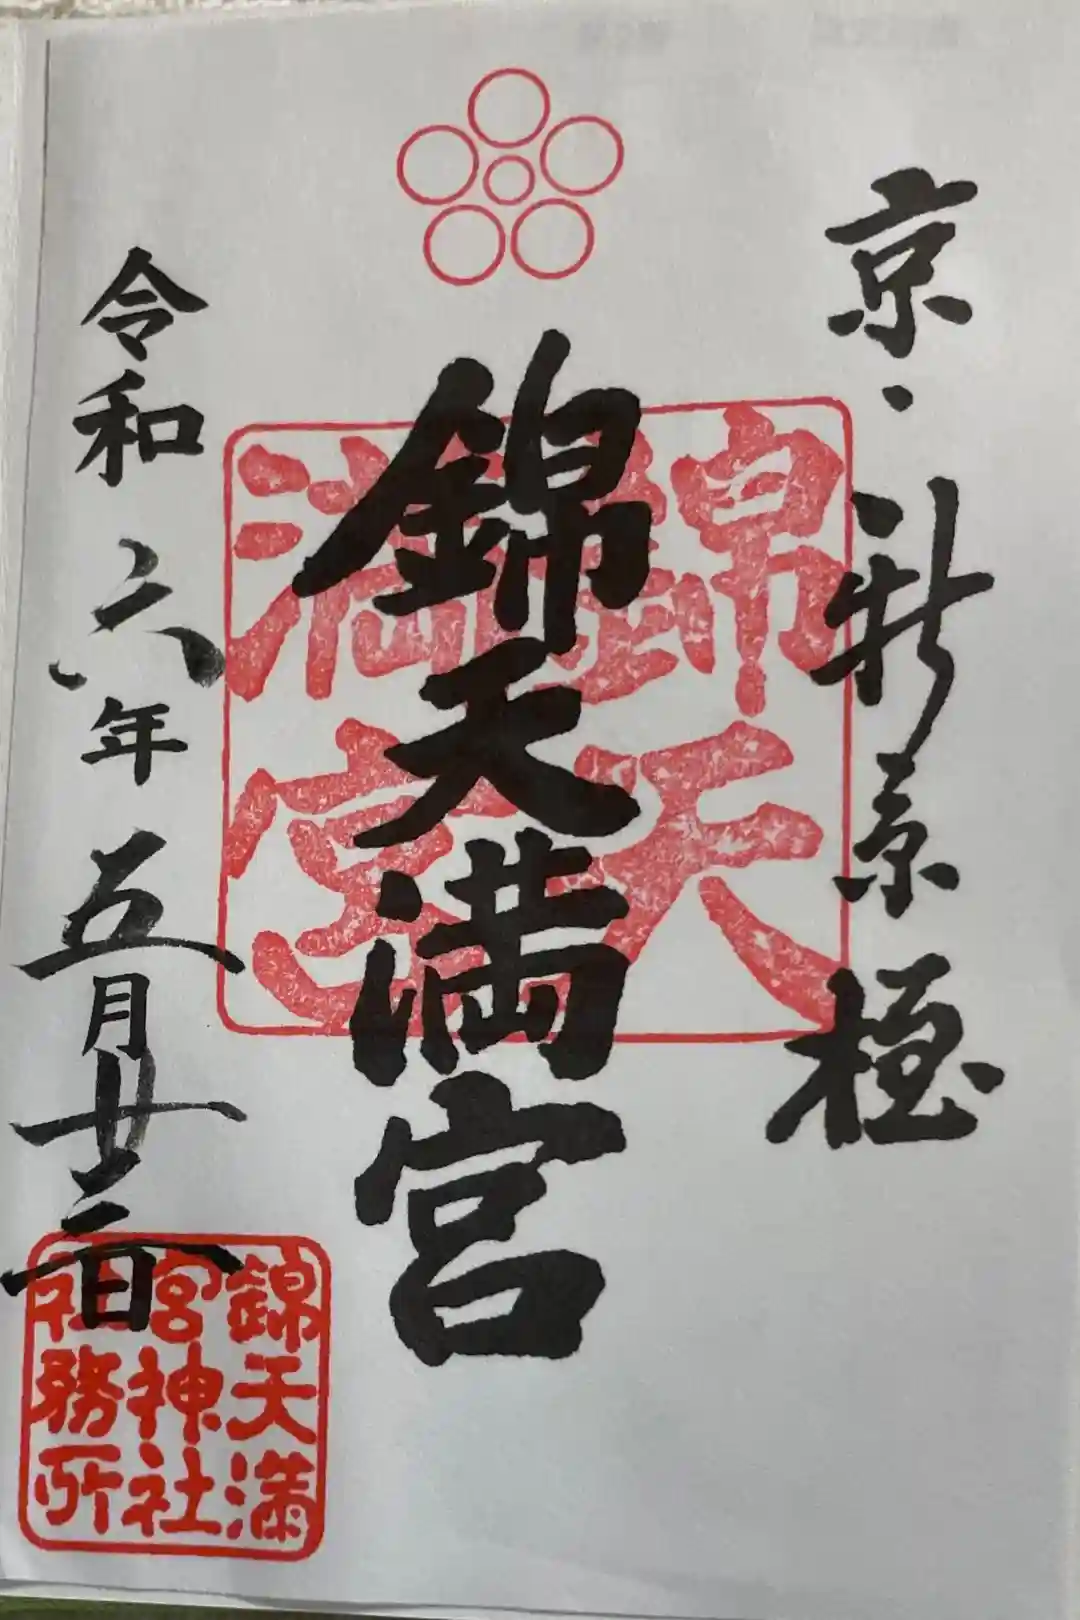 京・新京極
錦天満宮
錦天
満宮
令和六年五月廿二日
錦天満
宮神社
社務所